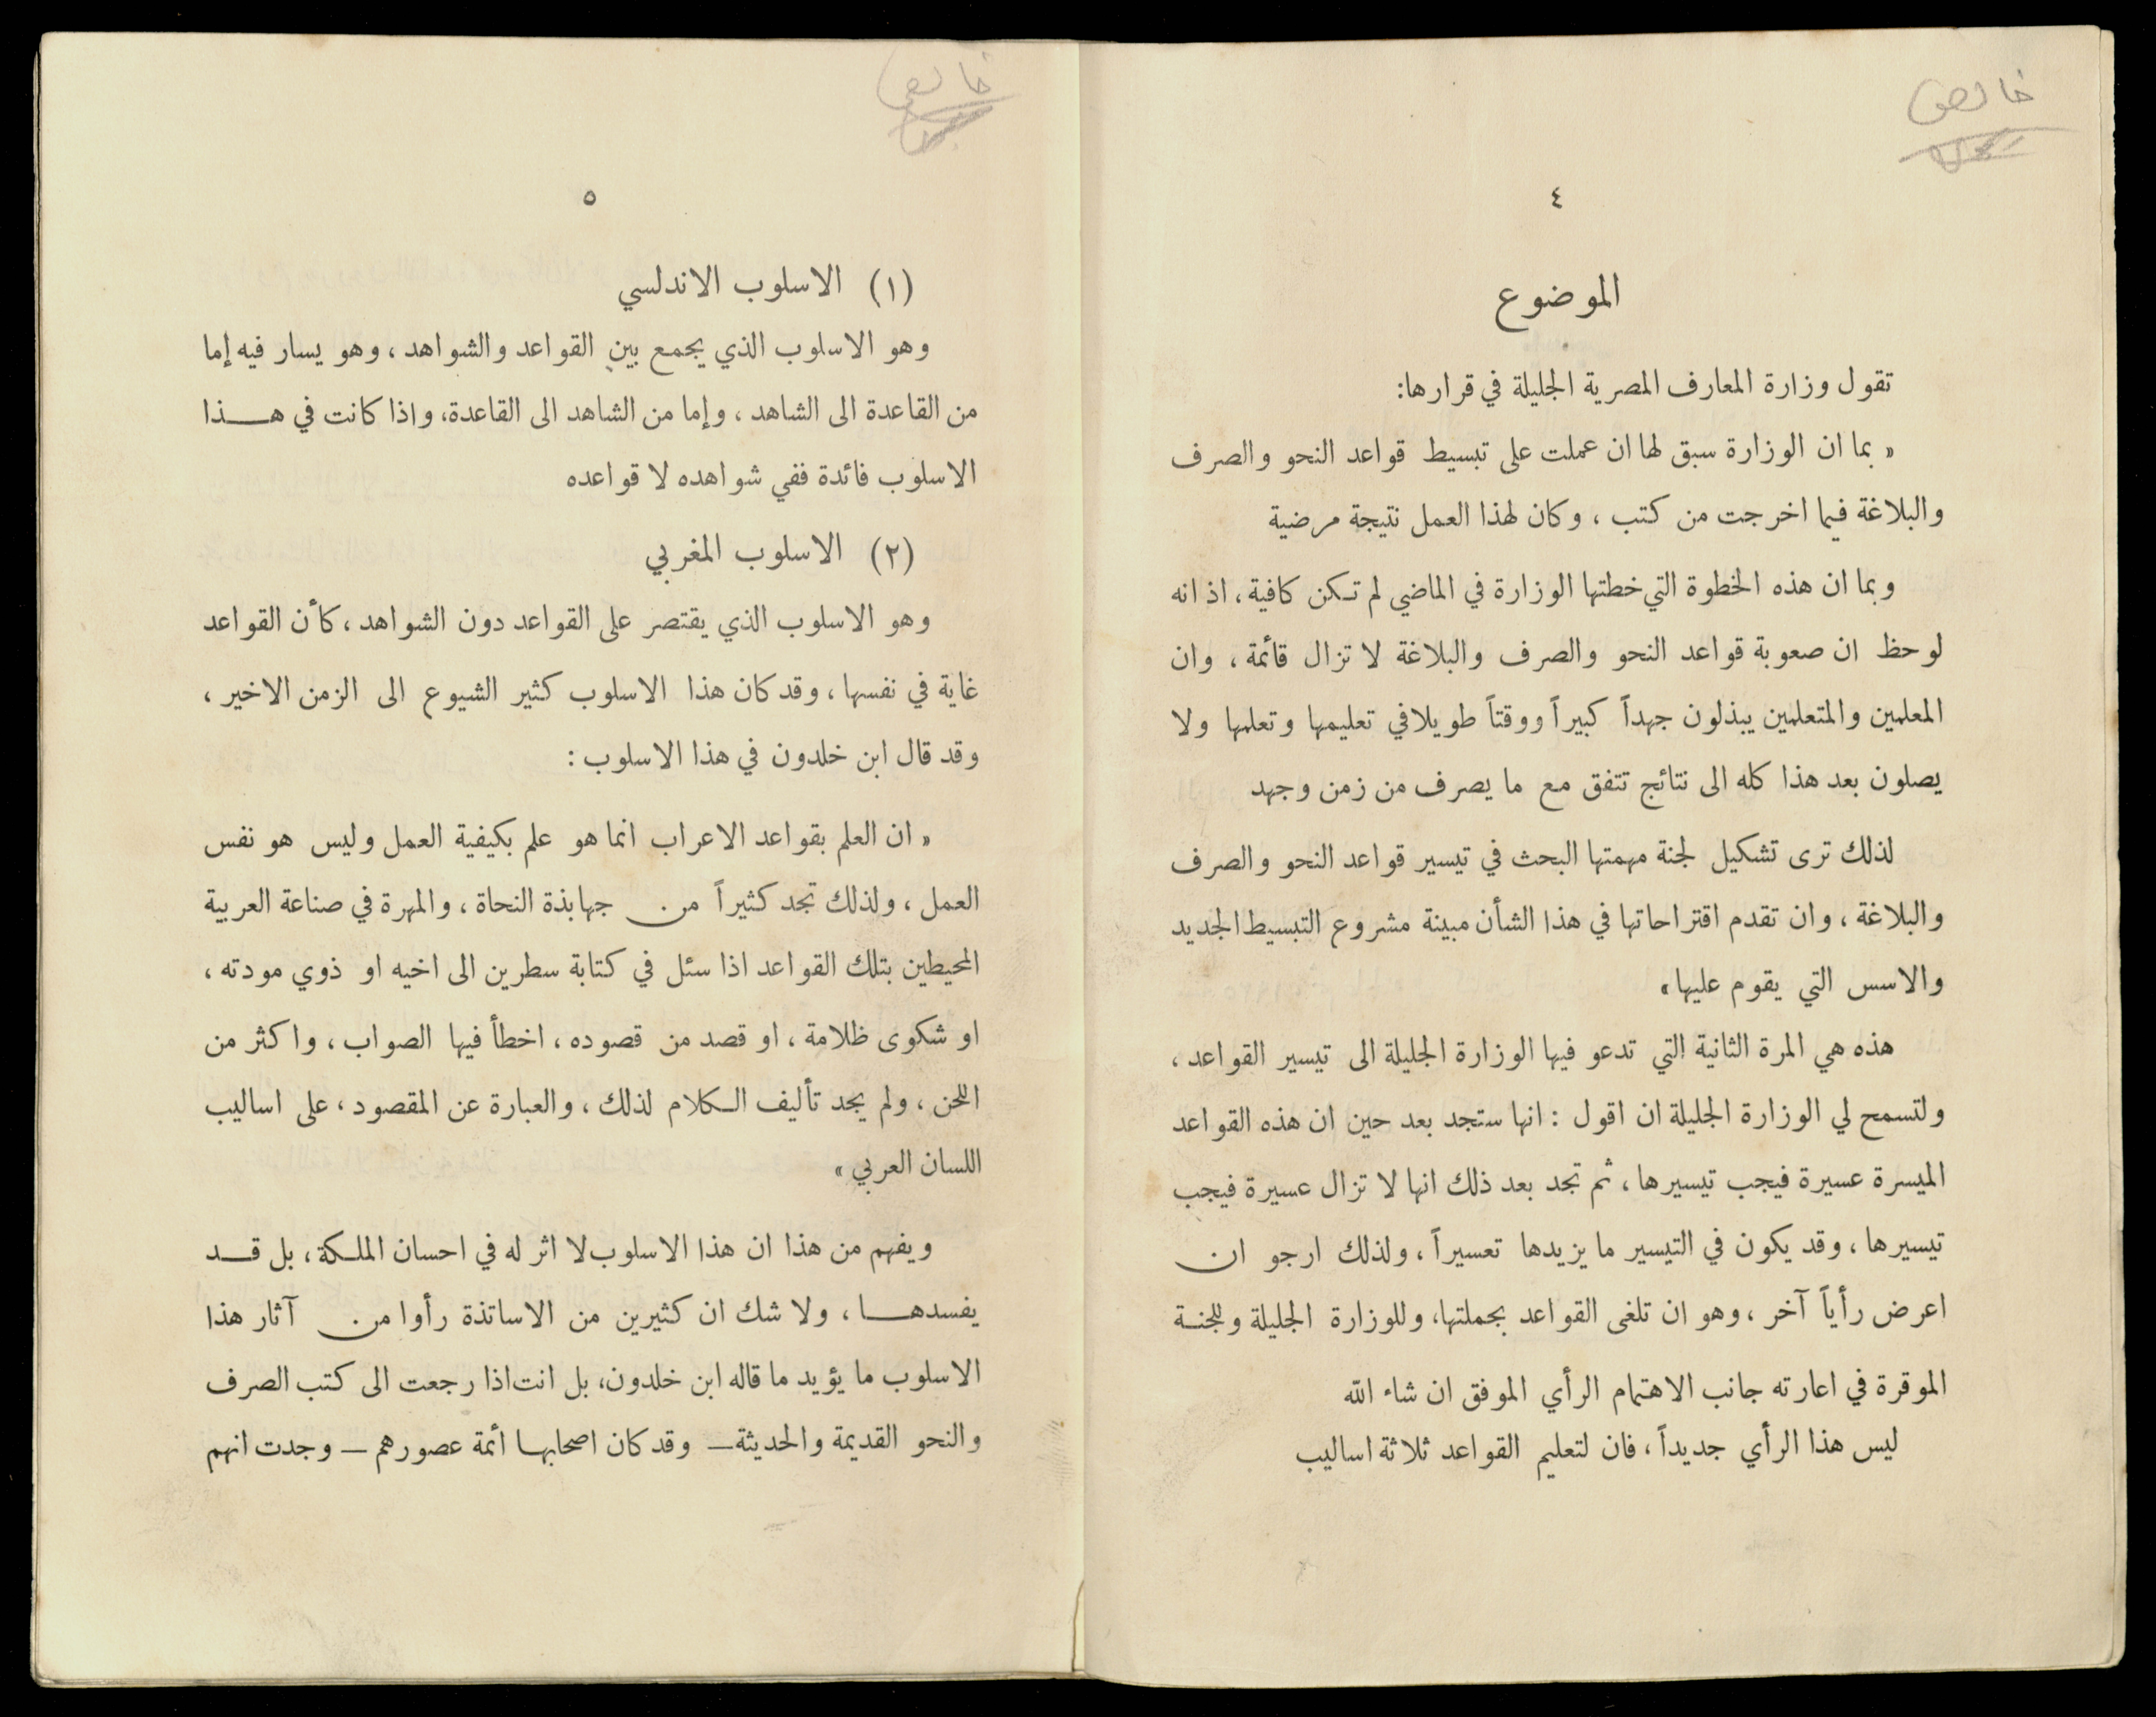 خالص
٤
الموضوع
تقول وزارة المعارف المصرية الجليلة في قرارها:
« بما ان الوزارة سبق لها ان عملت على تبسيط قواعد النحو والصرف
والبلاغة فيما اخرجت من كتب ، وكان لهذا العمل نتيجة مرضية
وبما ان هذه الخطوة التي خطتها الوزارة في الماضي لم تكن كافية ، اذ انه
لوحظ ان صعوبة قواعد النحو والصرف والبلاغة لا تزال قائمة ، وان
المعلمين والمتعلمين يبذلون جهداً كبيراً ووقتاً طويلا في تعليمها وتعلمها ولا
يصلون بعد هذا كله الى نتائج تتفق مع ما يصرف من زمن وجهد
لذلك ترى تشكيل لجنة مهمتها البحث في تيسير قواعد النحو والصرف
والبلاغة ، وان تقدم اقتراحاتها في هذا الشأن مبينة مشروع التبسيط الجديد
والاسس التي يقوم عليها »
هذه هي المرة الثانية التي تدعو فيها الوزارة الجليلة الى تيسير القواعد ،
ولتسمح لي الوزارة الجليلة ان اقول : انها ستجد بعد حين ان هذه القواعد
الميسرة عسيرة فيجب تيسيرها ، ثم تجد بعد ذلك انها لا تزال عسيرة فيجب
تيسيرها ، وقد يكون في التيسير ما يزيدها تعسيراً ، ولذلك ارجو ان
اعرض رأياً آخر ، وهو ان تلغى القواعد بجملتها، وللوزارة الجليلة وللجنة
الموقرة في اعارته جانب الاهتمام الرأي الموفق ان شاء الله
ليس هذا الرأي جديداً ، فان لتعليم القواعد ثلاثة اساليب
خالص
٥
(١) الاسلوب الاندلسي
وهو الاسلوب الذي يجمع بين القواعد والشواهد ، وهو يسار فيه إما
من القاعدة الى الشاهد ، وإما من الشاهد الى القاعدة، واذا كانت في هـذا
الاسلوب فائدة ففي شواهده لا قواعده
(٢) الاسلوب المغربي
وهو الاسلوب الذي يقتصر على القواعد دون الشواهد ، كأن القواعد
غاية في نفسها ، وقد كان هذا الاسلوب كثير الشيوع الى الزمن الاخير ،
وقد قال ابن خلدون في هذا الاسلوب :
« ان العلم بقواعد الاعراب انما هو علم بكيفية العمل وليس هو نفس
العمل ، ولذلك تجد كثيراً من جهابذة النحاة ، والمهرة في صناعة العربية
المحيطين بتلك القواعد اذا سئل في كتابة سطرين الى اخيه او ذوي مودته ،
او شكوى ظلامة ، او قصد من قصوده ، اخطأ فيها الصواب ، واكثر من
اللحن ، ولم يجد تأليف الكلام لذلك ، والعبارة عن المقصود ، على اساليب
اللسان العربي »
ويفهم من هذا ان هذا الاسلوب لا اثر له في احسان الملكة ، بل قـد
يفسدهـا ، ولا شك ان كثيرين من الاساتذة رأوا من آثار هذا
الاسلوب ما يؤيد ما قاله ابن خلدون، بل انت اذا رجعت الى كتب الصرف
والنحو القديمة والحديثة – وقد كان اصحابها أئمة عصورهم – وجدت انهم